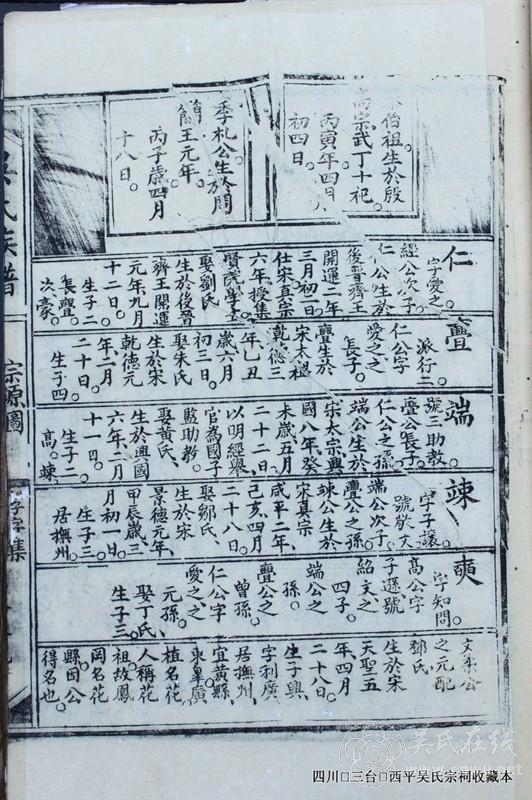 伯祖生於殷
高宗武丁十祀
丙寅年四月
初四日。
季札公生於周
簡王元年。
丙子歲四月
十八日。
仁
字愛之。
經公次子
仁公生於
後晉齊王
開運二
三月初二日
仕宋真宗
六年授集
賢院學士
娶劉氏
生於後晉
齊王開運
元年九月
十二日。
生子二
長亹。
次豪。
亹
派行二。
仁公字
愛之之
長子。
亹生於
宋太祖
乾德三
年乙丑
歲六月
初三日。
娶朱氏
生於宋
乾德元
年二月
二十日。
生子四
端
號三助教。
亹公長子
仁公之孫
端公生於
宋太宗興
國八年癸
未歲五月
二十二日
以明經舉
官為國子
監助教。
娶黃氏、
生於興國
六年二月
十一日。
生子二
髙。竦
竦
字子讓。
號敬文
端公次子
亹公之孫。
竦公生於
宋真宗
咸平二年、
己亥四月
二十八日
娶鄒氏、
生於宋
景德元年、
甲辰歲三
月初一日。
生子三
居撫州。
奭
字知問。
髙公字
子遜號
紹文之
四子。
端公之
孫。
亹公之
曾孫。
仁公字
愛之之、
元孫。
娶丁氏、
生子三。
文公
之元配
鄒氏
生於宋
天聖五
年四月
二十八日。
生子興、
字利廣、
居撫州、
宜黃縣、
東皐廣。
植名花
人稱花
祖故鳳
岡名花
縣因公
得名也。
吳氏族譜
宗源圖
字集
吴氏在线
四川□三台□西平吴氏宗祠收藏本